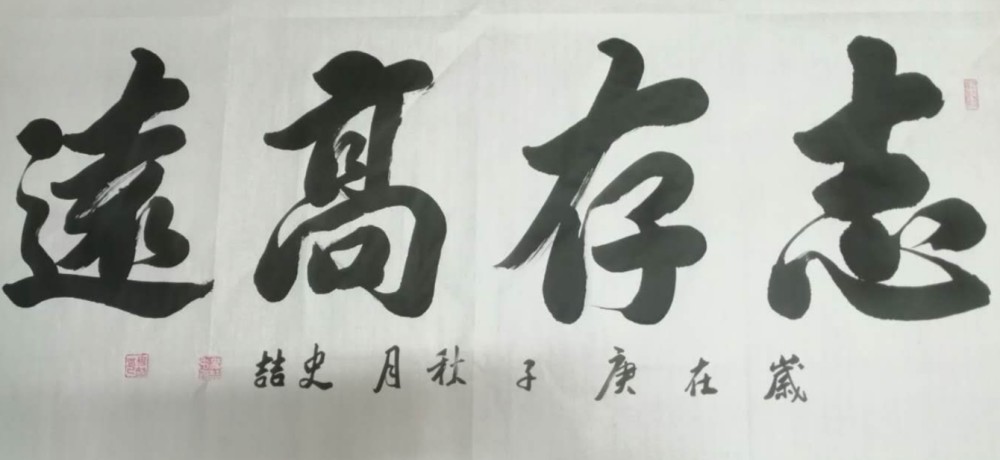 志存高遠
歲在庚子秋月史喆